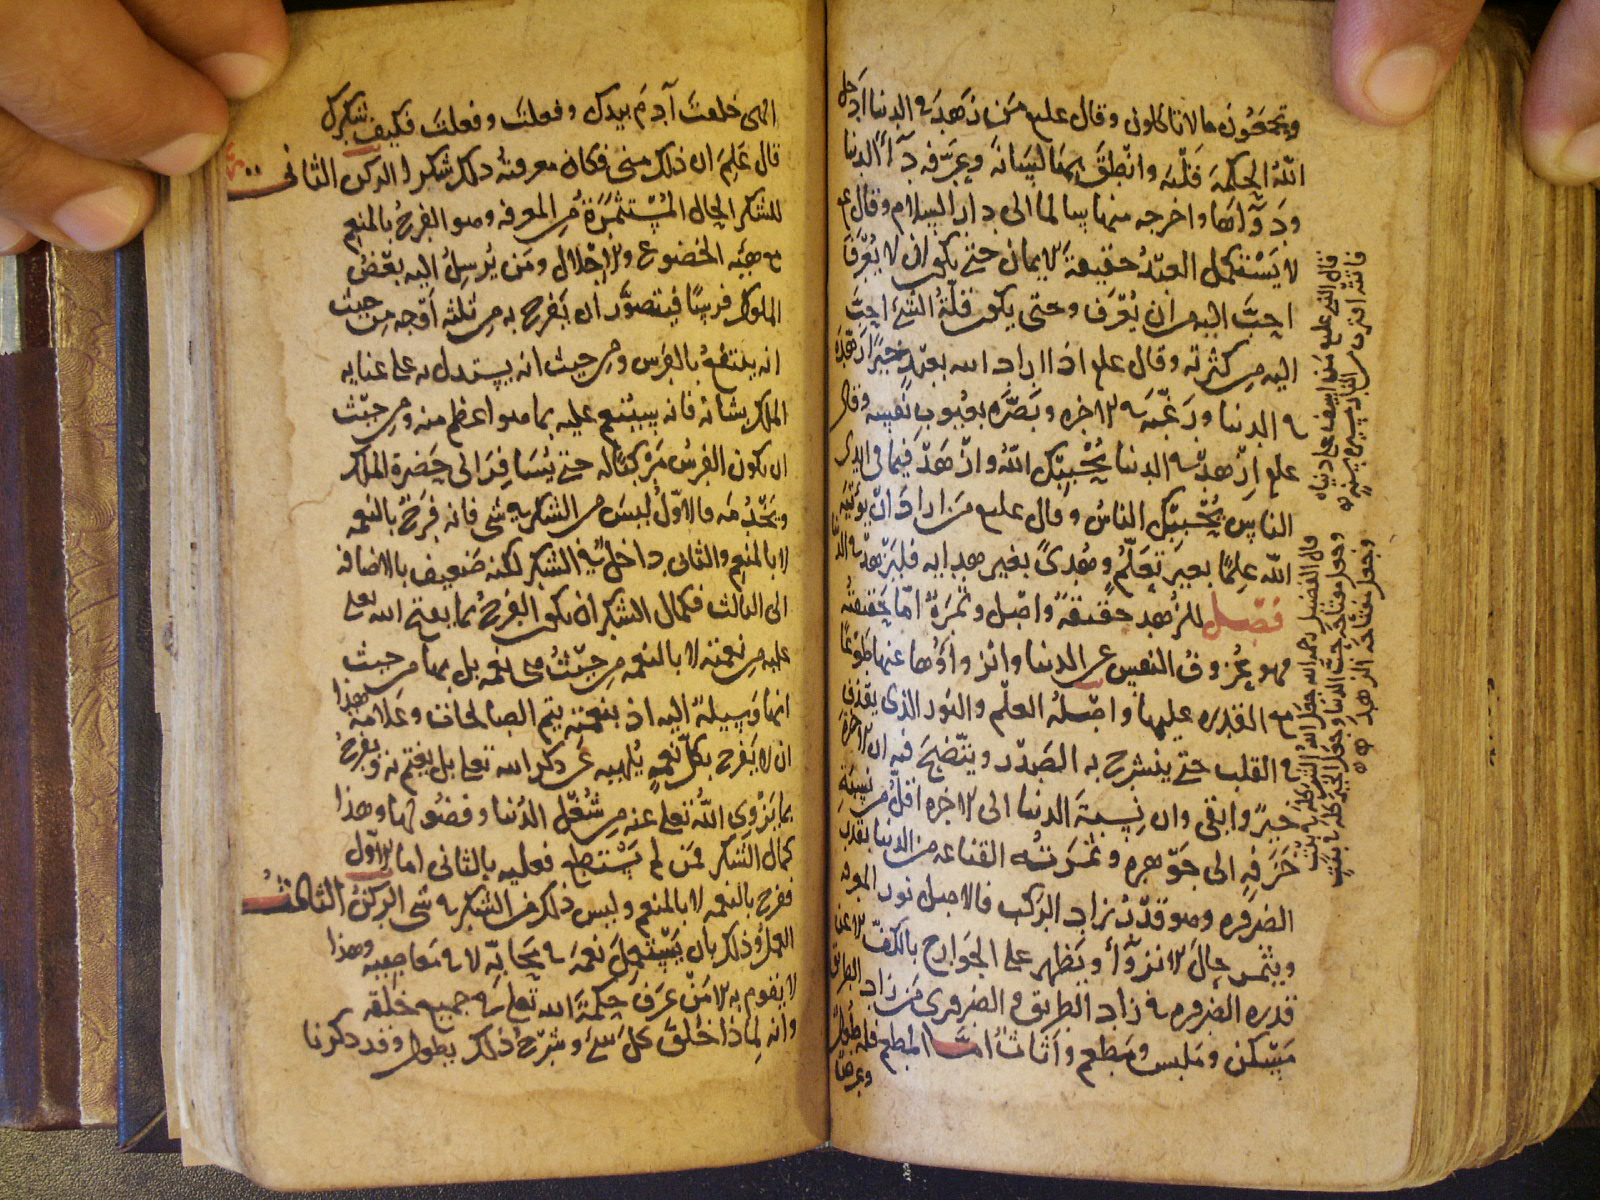 وتجمعون ما لا تاكلون وقال علىع من زهد ى الدنيا ادخل
الله الحكمة قلبه وانطق بها لسانه وعرفه دآء الدنيا
ودوآاها واخرجه منها سالما الى دار السلام وقال ع
لا يستكمل العبد حقيقة الايمان حتى يكون ان لا يعرف
احب اليه من ان يعرف وحتى يكون قلة الشئ احب
اليه من كثرته وقال علىع اذا اراد الله بعبد خيرا زهده
ى الدنيا ورغبه ى الاخره وبصره بعيوب نفسه وقال
علىع ازهد ى الدنيا يحببك الله وازهد فيما فى ايدى
الناس يحببك الناس وقال علىع من اراد ان يوتيه
الله علما بغير تعلم وهدى بغير هدايه فليزهد ى الدنيا
فصل للزهد حقيقة واصل وثمرة اما حقيقته
فهو عزوف النفس عن الدنيا وانزواؤها عنها طوعا
مع القدره عليها واصله العلم والنور الذى يقذف
ى القلب حتى ينشرح به الصدر ويتضح فيه ان الاخرة
خير وابقى وان نسبة الدنيا الى الاخره اقل من نسبة
خزفه الى جوهره وثمرته القناعه من الدنيا بقدر
الضروره وهو قدر زاد الركب فالاصل نور المعرفه
ويثمر حال الانزوآء ويظهر على الجوارح بالكف الا عن
قدره الضروره ى زاد الطريق والضرورى من زاد الطريق
مسكن وملبس ومطعم واثاث اما المطعم فله طول
وعرض
قال النبى علىع من اسف على دنيا
فاتته اقترب من النار مسيره سنه
قال الفضيل رحمه الله جعل الله الشر كله ى بيت
وجعل مفتاحه حب الدنيا وجعل الخير كله ى بيت
وجعل مفتاحه الزهد
الهى خلقت آدم بيدك وفعلت وفعلت فكيف شكرك
قال علم ان ذلك منى فكان معرفته ذلك شكرا الركن الثانى
للشكر الحال المستثمرة من المعرفه وهو الفرح بالمنعم
مع هيئه الخضوع والاجلال ومن يرسل اليه بعض
الملوك فرسا فيتصور ان يفرح به من ثلثه اوجه من حيث
انه ينتفع بالفرس ومن حيث انه يستدل به على عنايه
الملك بشانه فانه سينعم عليه بما هو اعظم منه ومن حيث
ان يكون الفرس مركبا له حتى يسافر الى حضرة الملك
ويخدمه فالاول ليس من الشكر ى شى فانه فرح بالنعمه
لا بالمنعم والثانى داخل فى الشكر لكنه ضعيف بالاضافه
الى الثالث فكمال الشكر ان يكون الفرح بما يفتح الله تعلى
عليه من نعمته لا بالنعمه من حيث هى نعمه بل بها من حيث
انها وسيلة اليه اذ بنعمته يتم الصالحات وعلامة هذا
ان لا يفرح بكل نعمه يلهيه عن ذكر الله تعلى بل يغتم به ويفرح
بما يزوى الله تعلى عنه من شغل الدنيا وفضولها وهذا
كمال الشكر فمن لم يستطع فعليه بالثانى اما الاول
ففرح بالنعمه لا بالمنعم وليس ذلك من الشكر ى شى الركن الثالث
العمل وذلك بان يستعمل نعمه ى محابه لا ى معاصيه وهذا
لا يقوم به الا من عرف حكمة الله تعلى ى جميع خلقه
وانه لماذا خلق كل شئ وشرح ذلك يطول وقد ذكرنا